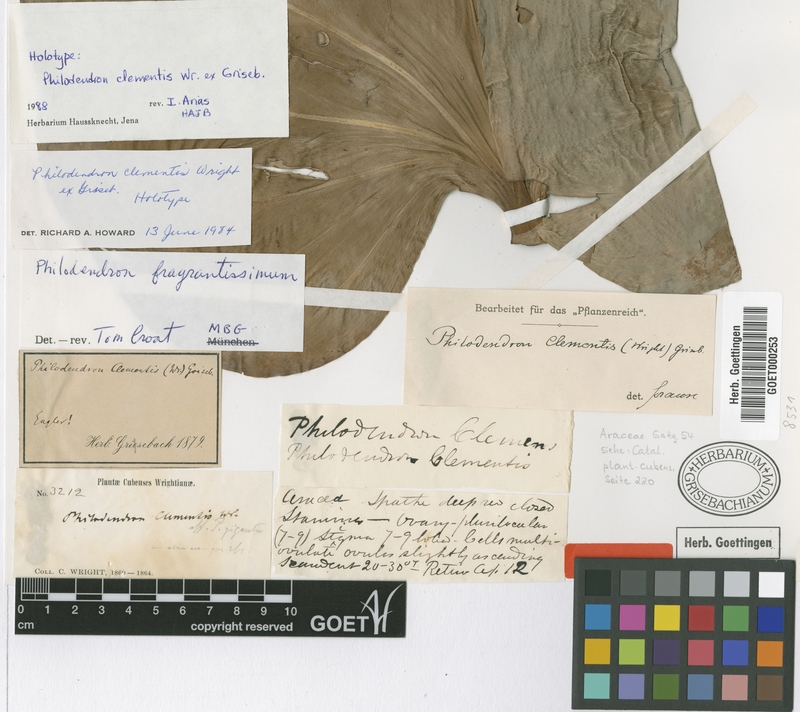 Holotype:
Philodendron clementis Wr. ex Griseb.
1988 rev. I. Arias
HAJB
Herbarium Haussknecht, Jena
Philodendron clementis Wright
ex Griseb.
Holotype
DET. RICHARD A. HOWARD 13 June 1984
Philodendron fragrantissimum
Det. — rev. Tom Croat MBG
München
Philodendron Clementis (Wr) Griseb.
Engler!
Herb. Grisebach 1879.
Plantæ Cubenses Wrightianæ.
No. 3212
Philodendron
COLL. C. WRIGHT, 1860—1864.
Bearbeitet für das „Pflanzenreich".
Philodendron Clementis (Wright) Griseb.
det. Krause
Philodendron Clemens
Philodendron Clementis
Aracea Spathe deep red closed
Stamines — Ovary
(7-9) Stigma 7-9 lobed. Cells multi-
ovulate ovules slightly ascending
Scandent 20-30
Herb. Goettingen
GOET000253
8531
Araceae Gatg. 54
siehe: Catal.
plant. Cubens.,
Seite 220
HERBARIUM
GRISEBACHIANUM
Herb. Goettingen
0 1 2 3 4 5 6 7 8 9 10
cm copyright reserved GOET